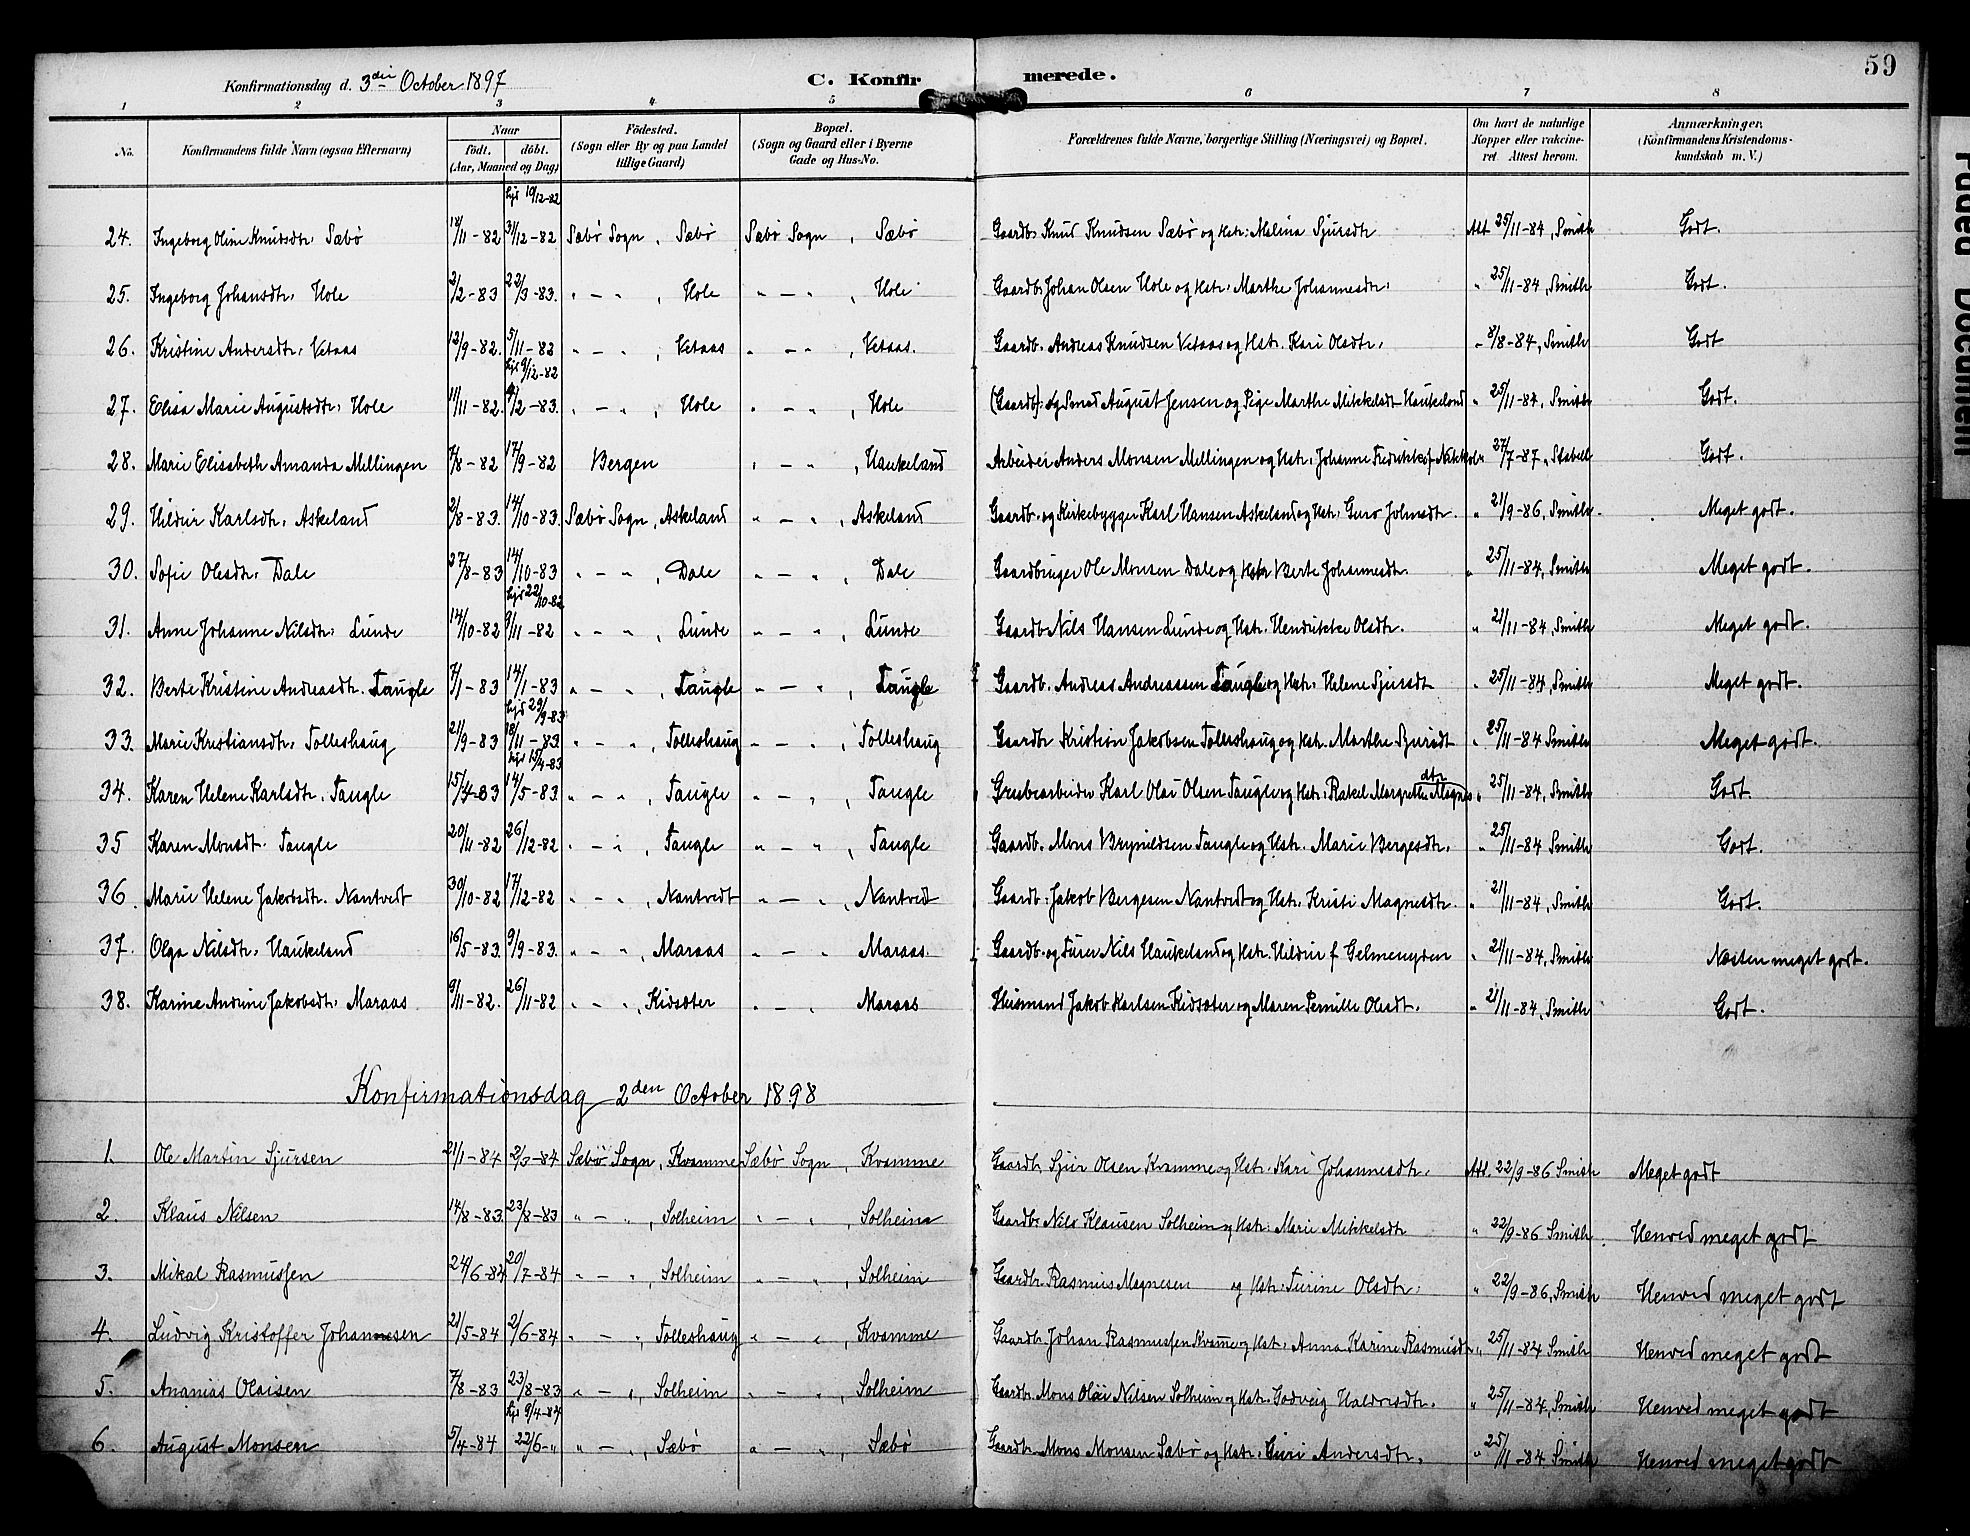 59
Konfirmationsdag d. 3die October 1897
C. Konfirmerede.
1 2 3 4 5 6 7 8
No. Konfirmandens fulde Navn (ogsaa Efternavn) Naar født. døbt. (Aar, Maaned og Dag) Födested. (Sogn eller By og paa Landet tillige Gaard) Bopæl. (Sogn og Gaard eller i Byerne Gade og Hus-No. Forældrenes fulde Navne, borgerlige Stilling (Næringsvei) og Bopæl. Om havt de naturlige Kopper eller vakcineret. Attest herom. Anmærkninger. (Konfirmandens Kristendomskundskab m. V.)
hjd 19/12-82
24. Ingeborg Oline Knudsdtr. Sæbø 18/11-82 31/12-82 Sæbø Sogn, Sæbø Sæbø Sogn, Sæbø Gaardb. Knud Knudsen Sæbø og Hstr. Malina Sjursdtr Att. 25/11-84, Smith Godt.
25. Ingeborg Johansdtr. Hole 2/2-83 22/3-83. " - " , Hole " - " , Hole Gaardb. Johan Olsen Hole og Hstr. Marthe Johannesdtr. " 25/11-84, Smith Godt.
26. Kristine Andersdtr. Vetaas 12/9-82. 5/11-82 " - " , Vetaas " - " , Vetaas. Gaardb. Andreas Knudsen Vetaas og Hstr. Kari Olsdtr. " 8/8-84, Smith Godt
hjd 9/12-82
27. Elisa Marie Augustsdtr. Hole 11/11-82. /2-83. " - " , Hole " - " , Hole (Gaardb). og Smed August Jensen og Pige Marthe Mikkelsdt Haukeland " 25/11-84, Smith Godt.
28. Marie Elisabeth Amanda Mellingen 7/8-82 17/9-82 Bergen " - " , Haukeland Arbeider Anders Monsen Mellingen og Hstr. Johanne Fredrikke f. " 27/7-87, Stabell Godt.
29. Hildur Karlsdtr. Askeland 2/8-83. 14/10-83. Sæbø Sogn, Askeland " - " , Askeland Gaardb. og Kirkebygger Karl Hansen Askeland og Hstr. Guro Johnsdtr. " 21/9-86, Smith. Meget godt.
30. Sofie Olsdtr. Dale 27/8-83 14/10-83 " - " , Dale " - " , Dale Gaardbruger Ole Monsen Dale og Hstr Berte Johannesdtr. " 25/11-84, Smith Meget godt.
hjd 22/10-82
31. Anne Johanne Nilsdtr. Lunde 14/10-82 9/11-82 " - " , Lunde " - " , Lunde Gaardb Nils Hansen Lunde og Hstr. Hendrikke Olsdtr. " 21/11-84, Smith Meget godt.
32. Berte Kristine Andreasdtr. Taugle 7/1-83 14/1-83 " - " , Taugle " - " , Taugle Gaardb. Andreas Andreassen Taugle og Hstr. Helene Sjursdt " 25/11-84, Smith Meget godt.
hjd 29/9-83
33. Marie Kristiansdtr. Tolleshaug 21/9-83 18/11-83. " - " , Tolleshaug " - " , Tolleshaug Gaardbr Kristian Jakobsen Tolleshaug og Hstr. Marthe Sjursdt " 25/11-84 Smith Meget godt.
hjd 15/4-83
34. Karen Helene Karlsdtr. Taugle 15/4-83 14/5-83. " - " , Taugle " - " , Taugle Grubearbeider Karl Olai Olsen Taugle og Hstr. Rakel Margrethe Magnesdtr " 25/11-84, Smith Godt.
35 Karen Monsdt. Taugle 20/11-82 26/12-82 " - " , Taugle " - " , Taugle Gaardb. Mons Brynildsen Taugle og Hstr. Marie Bergesdtr. " 25/11-84 Smith Godt.
36. Marie Helene Jakobsdtr. Nantvedt 30/10-82 17/12-82 " - " , Nantvedt " - " , Nantvedt Gaardb. Jakob Bergesen Nantvedt og Hstr. Kristi Magnesdtr. " 21/11-84, Smith Godt.
37. Olga Nilsdtr. Haukeland 16/5-83. 9/9-83. " - " , Maraas " - " Maraas. Gaardb. og Fører Nils Haukeland og Hstr. Hildur f Gelmenyden " 21/11-84, Smith Næsten meget godt.
38. Karine Andrine Jakobsdtr. Maraas 9/11-82. 26/11-82 " - " , Kidsæter " - " Maraas Husmand Jakob Karlsen Kidsæter og Maren Pernille Olsdt. " 21/11-84, Smith Godt.
Konfirmationsdag 2den October 1898
1. Ole Martin Sjursen 21/1-84 2/3-84 Sæbø Sogn, Kvamme Sæbø Sogn, Kvamme Gaardb. Sjur Olsen Kvamme og Hstr. Kari Johannesdtr. Att. 22/9-86 Smith Meget godt
2. Klaus Nilsen 14/8-83. 23/8-83 " - " , Solheim " - " , Solheim Gaardb. Nils Klausen Solheim og Hstr. Marie Mikkelsdtr " 22/9-86 Smith. Henved meget godt
3. Mikal Rasmussen 24/6-84 20/7-84 " - " , Solheim " - " , Solheim Gaardbr. Rasmus Magnesen og Hstr. Turine Olsdtr. " 22/9-86, Smith Henved meget godt
4. Ludvig Kristoffer Johannesen 21/5-84 2/6-84 " - " , Tolleshaug " - " , Kvamme Gaardb. Johan Rasmussen Kvamme og Hstr. Anna Karine Rasmusdtr " 25/11-84 Smith Henved meget godt
5. Ananias Olaisen 7/8-83 23/8-83 " - " , Solheim " - " , Solheim Gaardbr. Mons Olai Nilsen Solheim og Hstr. Godveig Haldorsdtr. " 25/11-84, Smith Henved meget godt
hjd 9/4-84
6. August Monsen 5/4-84 22/6-" " - " , Sæbø " - " , Sæbø Gaardbr. Mons Monsen Sæbø og Hstr. Guri Andersdtr. " 25/11-84 Smith Henved meget godt
Faded Document